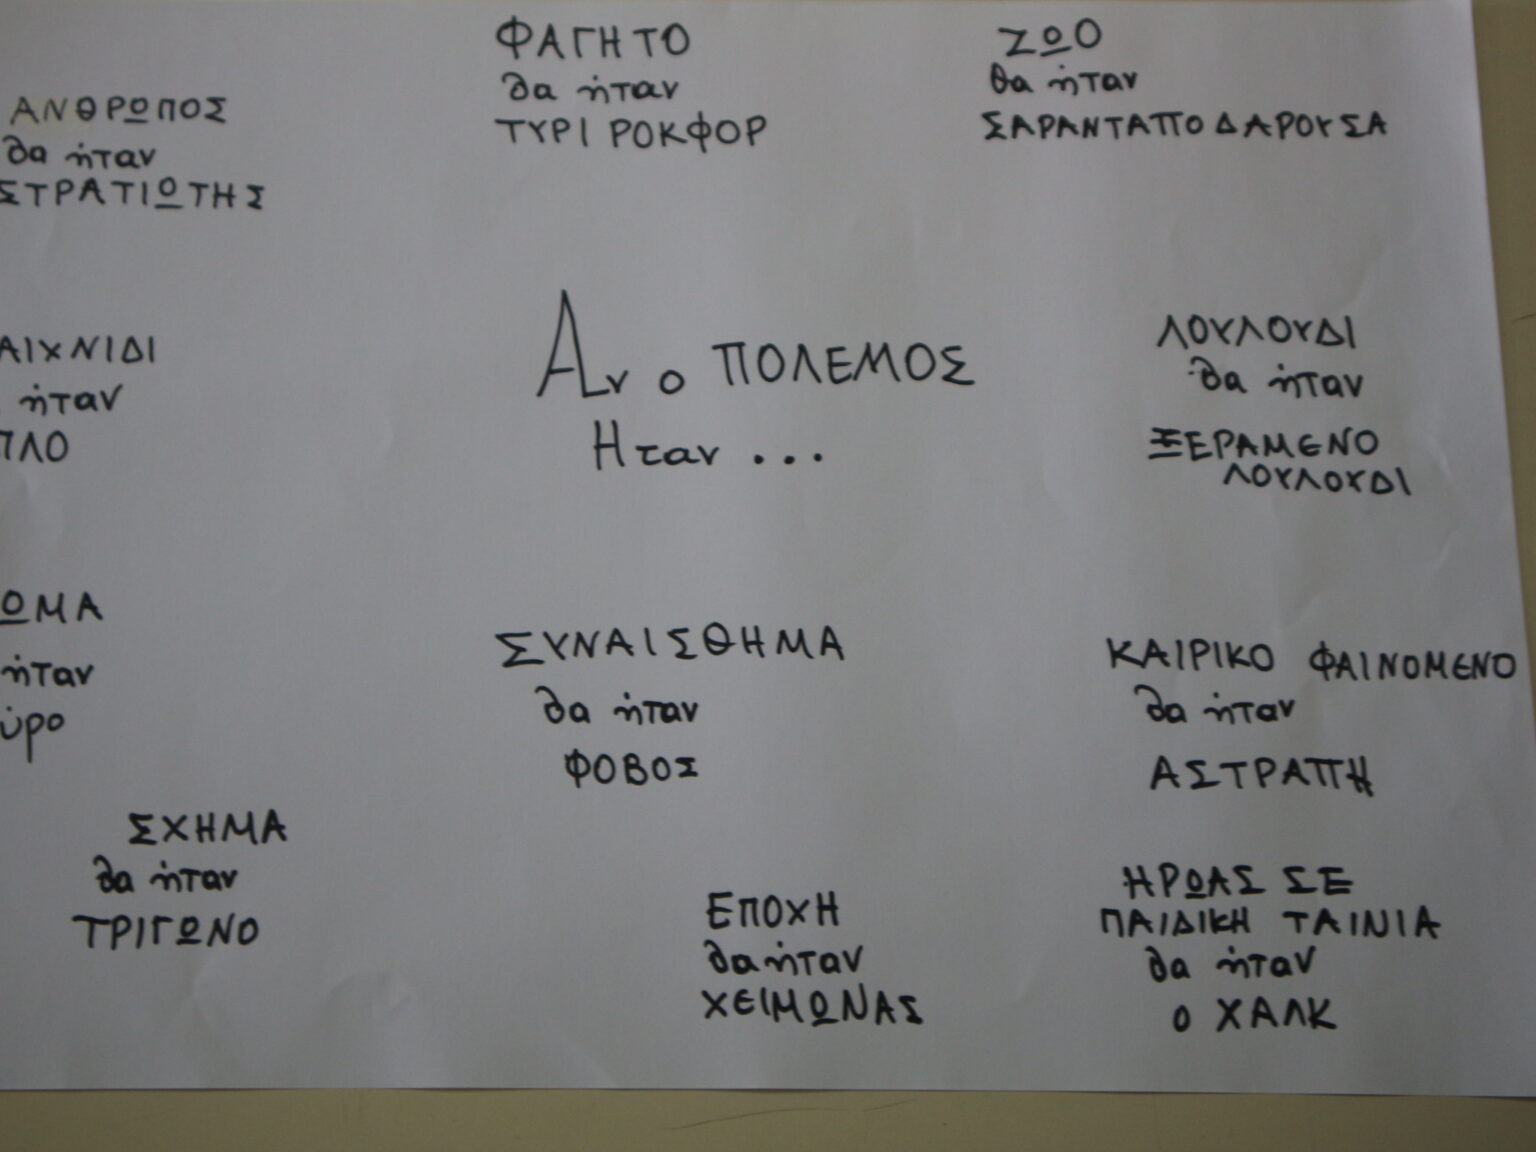 ΑΝΘΡΩΠΟΣ
θα ήταν
ΣΤΡΑΤΙΩΤΗΣ
ΦΑΓΗΤΟ
θα ήταν
ΤΥΡΙ ΡΟΚΦΟΡ
ΖΩΟ
θα ήταν
ΣΑΡΑΝΤΑΠΟΔΑΡΟΥΣΑ
ΑΙΧΝΙΔΙ
ήταν
ΠΛΟ
Αν ο ΠΟΛΕΜΟΣ
Ηταν ...
ΛΟΥΛΟΥΔΙ
θα ήταν
ΞΕΡΑΜΕΝΟ
ΛΟΥΛΟΥΔΙ
ΩΜΑ
ήταν
ύρο
ΣΥΝΑΙΣΘΗΜΑ
θα ήταν
ΦΟΒΟΣ
ΚΑΙΡΙΚΟ ΦΑΙΝΟΜΕΝΟ
θα ήταν
ΑΣΤΡΑΠΗ
ΣΧΗΜΑ
θα ήταν
ΤΡΙΓΩΝΟ
ΕΠΟΧΗ
θα ήταν
ΧΕΙΜΩΝΑΣ
ΗΡΩΑΣ ΣΕ
ΠΑΙΔΙΚΗ ΤΑΙΝΙΑ
θα ήταν
ο ΧΑΛΚ